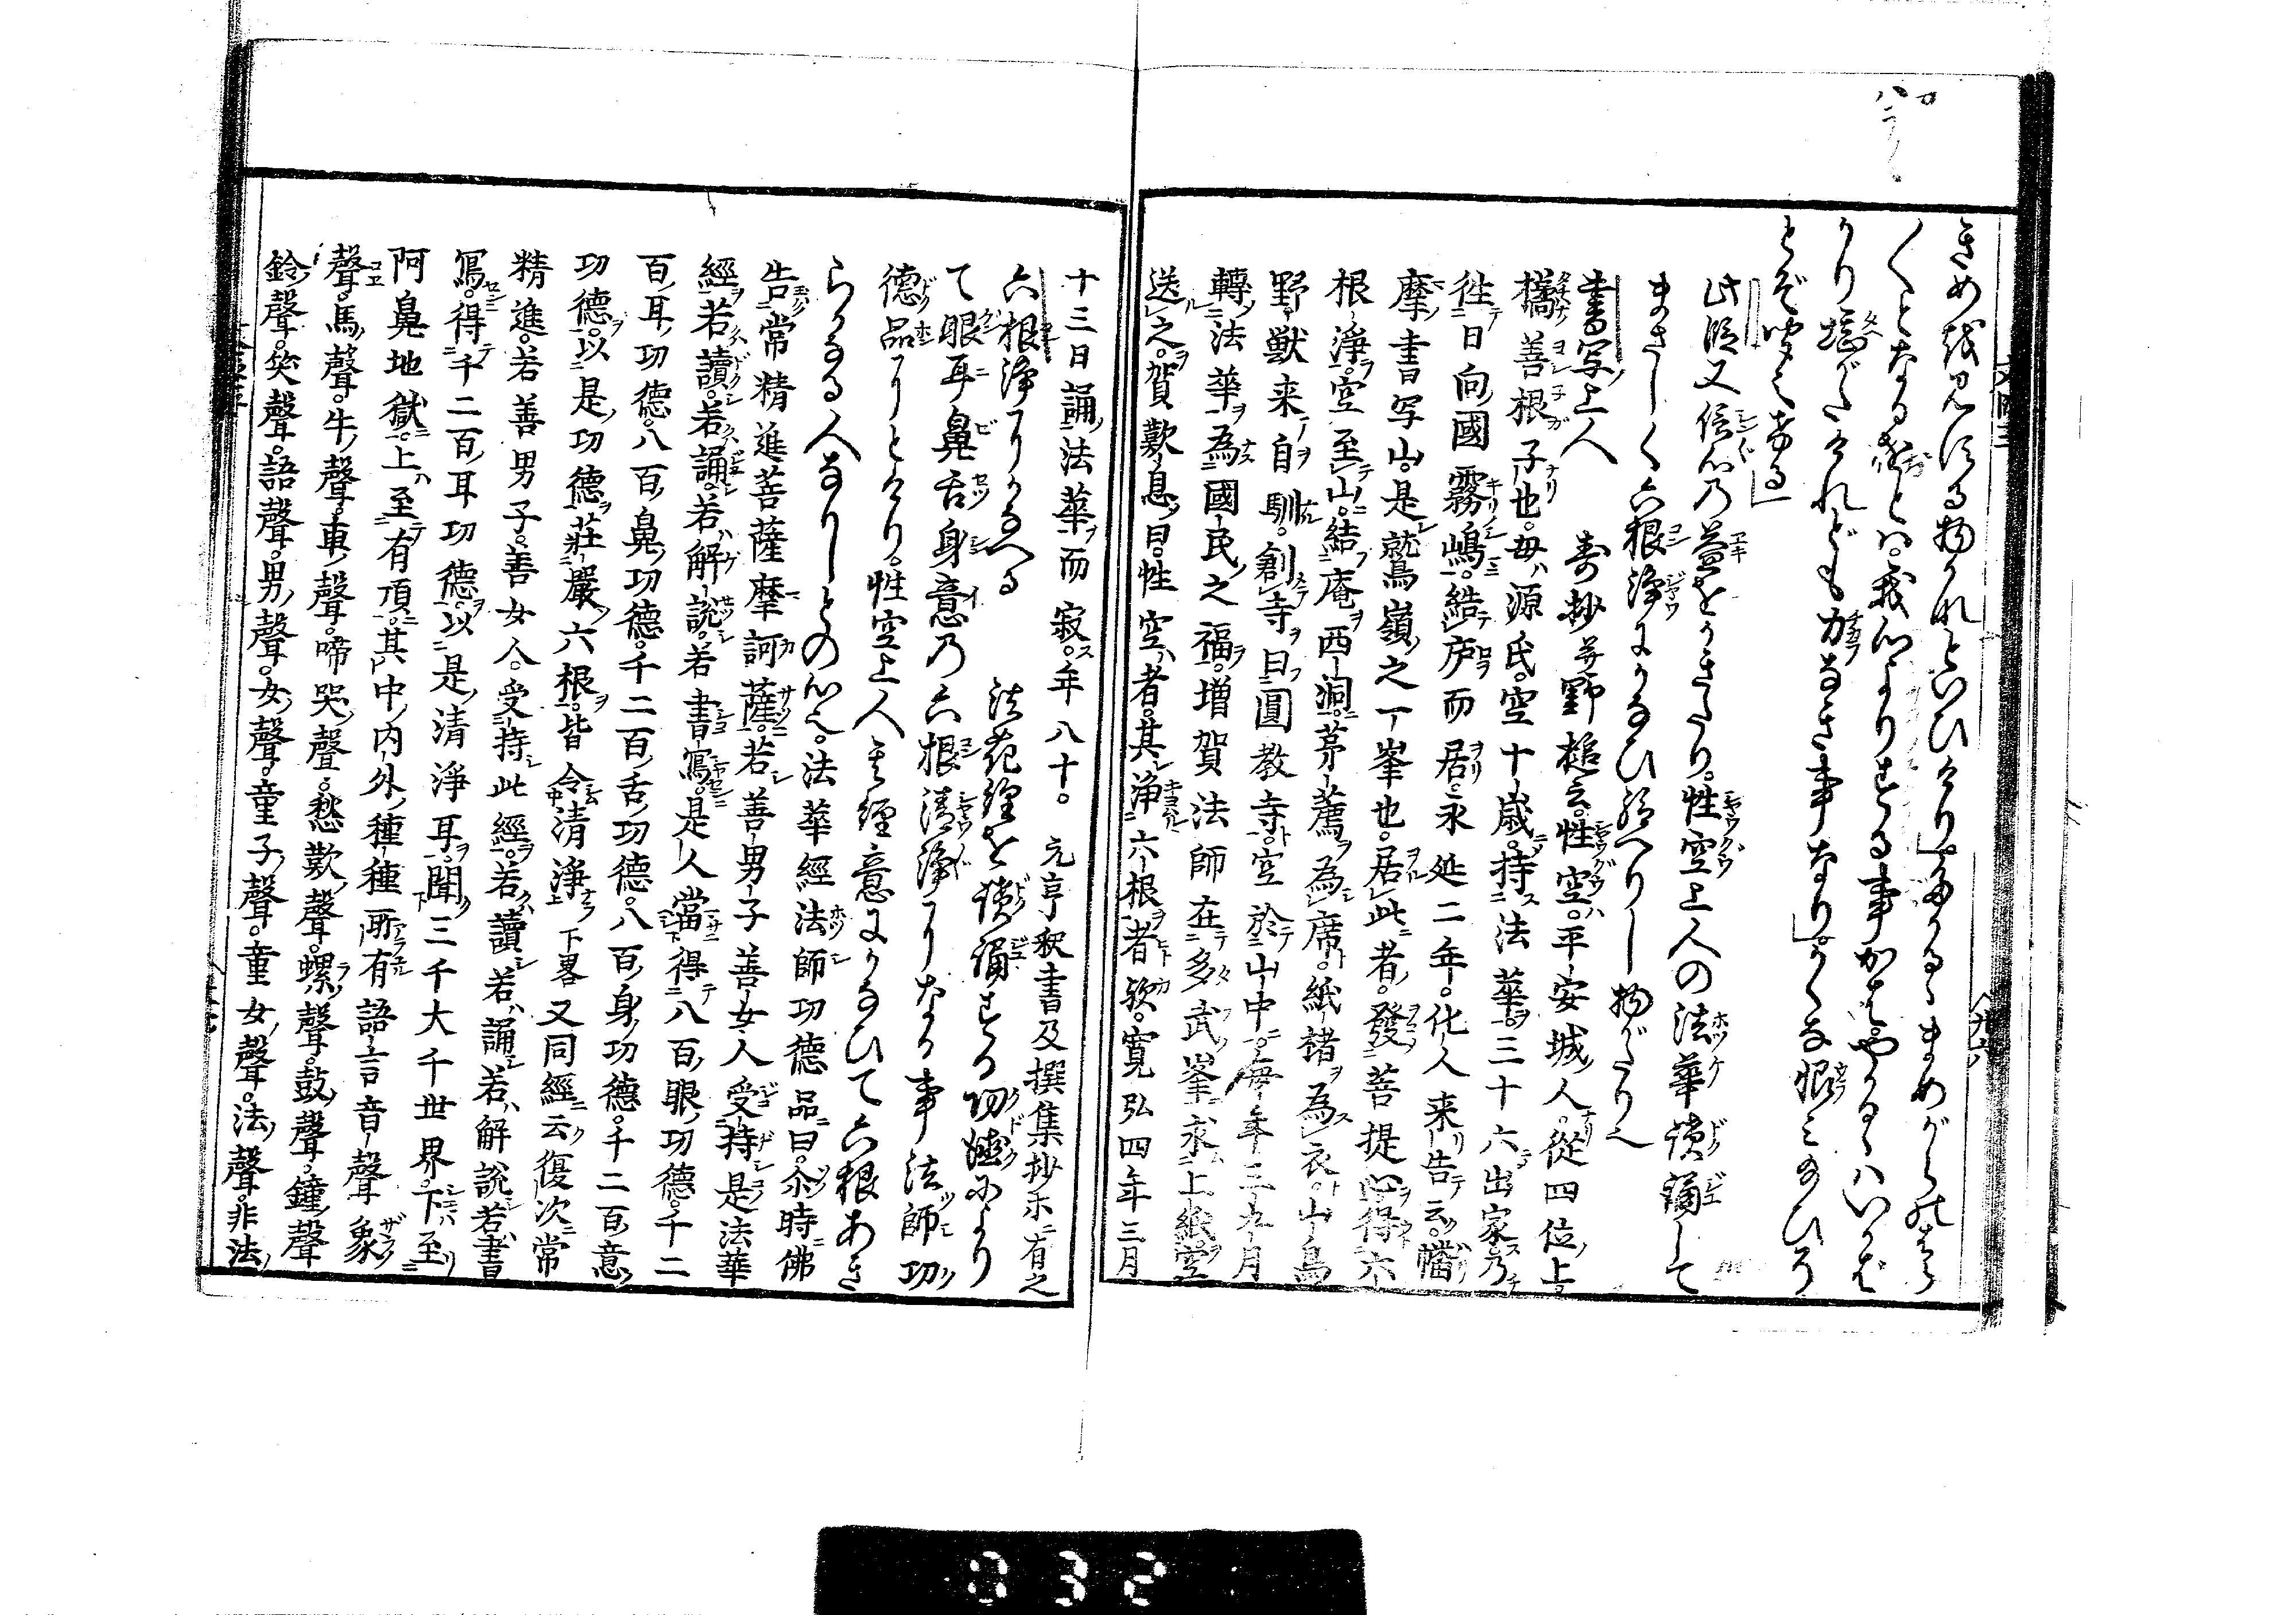 きめ越見侍る物かれといひけり」
くとなるおとハ我心よりする事かな
かり堪がたけれども力なき事なり」
とぞ聞えける」
此段又信心乃益をかきたり。性空上人の法華讀誦して
まさしく六根浄にかなひ給へりし物がたり也
書写上人　寿抄并野槌云。性空ハ平安城人。從四位上
橘善根子也。母ハ源氏。空十歳持法華。三十六出家乃
徃日向國霧嶋。結庐而居。永延二年。化人来告云。幡
摩書写山。是鷲嶺之一峯也。居此者。發菩提心得六
根浄。空至山。結庵西洞。茅薦為席。紙褚為衣。山鳥
野獣来自馴。創寺曰圓教寺。空於山中。毎年三九月
轉法華為國民之福。増賀法師在多武峯求上紙。空
送之。賀歎息曰。性空者。其浄六根者欤。寛弘四年三月
十三日誦法華而寂。年八十。元亨釈書及撰集抄ホニ有之
六根浄にかなへる　法花經を讀誦する功徳によりて
て眼耳鼻舌身意乃六根清浄になる事法師功
徳品にとけり。性空上人も經意にかなひて六根あき
らかなる人なりしとの心也。法華經法師功德品曰。尒時佛
告常精進菩薩摩訶薩。若善男子善女人受持是法華
經若讀。若誦。若解説。若書寫。是人當得八百眼功德。千二
百耳功德。八百鼻功德。千二百舌功德。八百身功德。千二百意
功德。以是功德莊嚴六根。皆令清淨下畧又同經云。復次常
精進。若善男子。善女人。受持此經。若讀若誦若解説若書
寫。得千二百耳功德。以是清淨耳。聞三千大千世界。下至
阿鼻地獄。上至有頂。其中内外種種所有語言音聲象
聲。馬聲。牛聲。車聲。啼哭聲。愁歎聲。螺聲。鼓聲。鐘聲
鈴聲。笑聲。語聲。男聲。女聲。童子聲。童女聲。法聲。非法
032